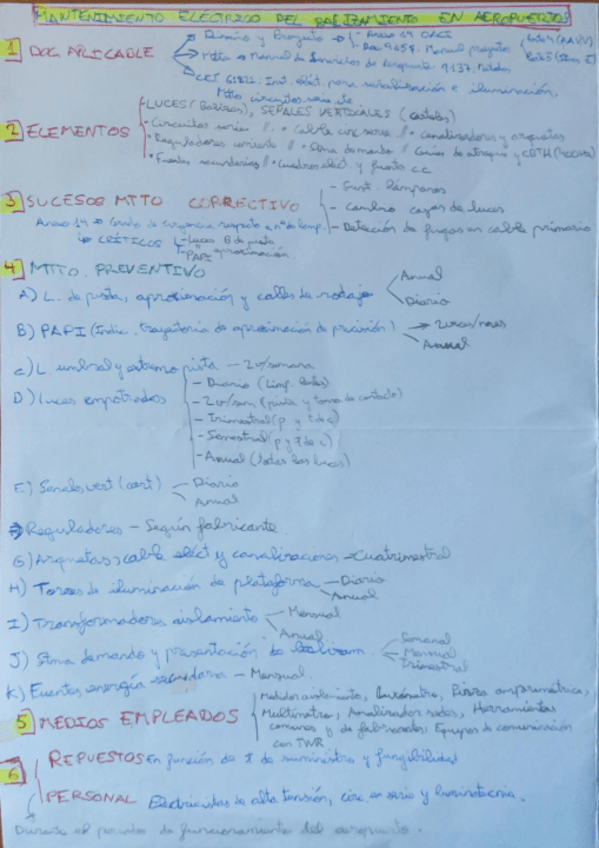 MANTENIMIENTO ELÉCTRICO DEL BALIZAMIENTO EN AEROPUERTOS
1 DOC APLICABLE
Diseño y Proyecto - Anexo 14 OACI
Doc 9157. Manual proyectos
Mtto Manual de Servicios de Aeropuerto 9137
Inst. eléct. para señalización e iluminación.
Mtto circuitos serie
2 ELEMENTOS
- LUCES (Balizas), SEÑALES VERTICALES (carteles)
- Circuitos serie // • Cable circ serie // • Canalizadores y arquetas
• Reguladores corriente // • Stma de mando // Guías de atraque y
• Fuentes secundarias // • Cuadros eléct. y fuente C.C
3 SUCESOS MTTO CORRECTIVO
- Sust. lámparas
- Cambio cajas de luces
- Detección de fugas en cable primario
Anexo 14 Grado de urgencia respecto a nº de lamp.
CRÍTICOS - Luces B de pista
- PAPI aproximación
4 MTTO. PREVENTIVO
A) L. de pista, aproximación y calles de rodaje
Anual
Diario
B) PAPI (Indic. trayectoria de aproximación de precisión)
2 veces/mes
Anual
C) L. umbral y extremo pista - 2v/semana
D) Luces empotradas
- Diario (Limp. lentes)
- 2v/sem (pista y toma de contacto)
- Trimestral (p. y t de c)
- Semestral (p y t de c)
- Anual (todas las luces)
E) Señales vert (cart)
- Diario
Anual
Reguladores - Según fabricante
G) Arquetas, cable eléct y canalizaciones - Cuatrimestral
H) Torres de iluminación de plataforma - Diario
Anual
I) Transformadores aislamiento - Mensual
Anual
J) Stma demando y presentación de balizam.
- Semanal
- Mensual
- Trimestral
K) Fuentes energía secundaria - Mensual.
5 MEDIOS EMPLEADOS
Medidor aislamiento, Luxómetro, Pinza amperimétrica,
Multímetro, Analizador redes, Herramientas
comunes y de fabricados, Equipos de comunicación
con TWR
6
REPUESTOS En función de t de suministro y fungibilidad
PERSONAL Electricistas de alta tensión, circ. en serie y luminotecnia.
Durante el periodo de funcionamiento del aeropuerto.